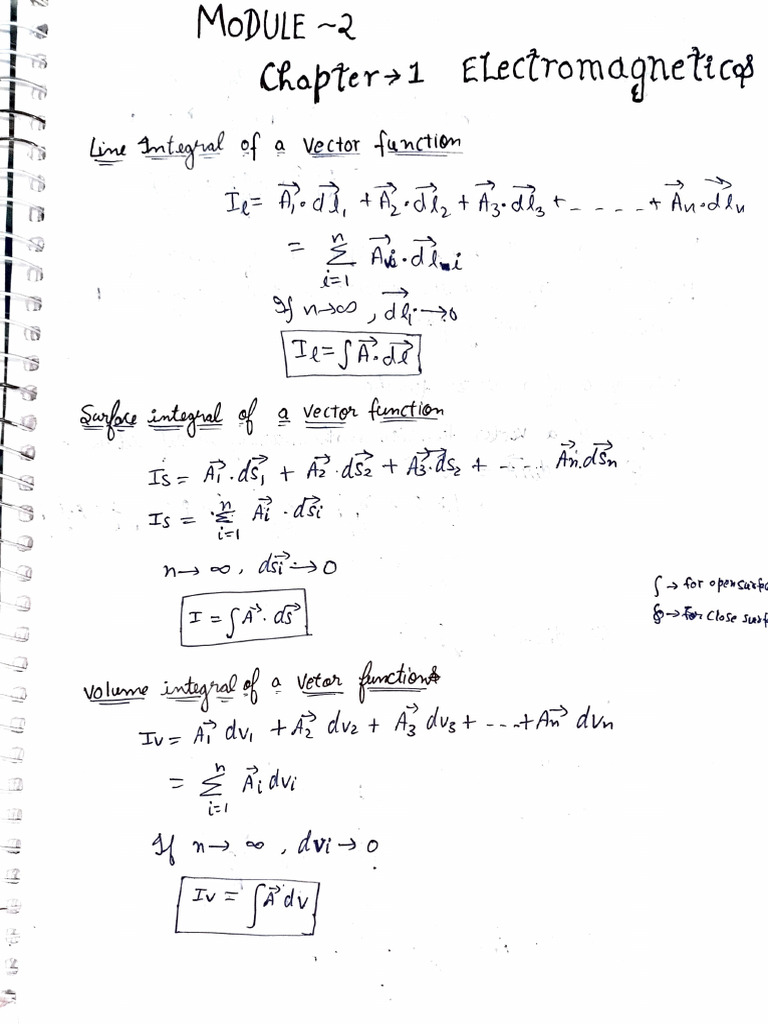 MODULE ~2
Chapter→1 Electromagnetics
Line Integral of a vector function
I_l = A⃗₁·dl⃗₁ + A⃗₂·dl⃗₂ + A⃗₃·dl⃗₃ + - - - - - + A⃗n·dl⃗n
= Σ_{i=1}^{n} A⃗i·dl⃗i
If n→∞, dl⃗i→0
I_l = ∫A⃗·dl⃗
Surface integral of a vector function
Is = A⃗₁·ds⃗₁ + A⃗₂·ds⃗₂ + A⃗₃·ds⃗₂ + - ... A⃗n·ds⃗n
Is = Σ_{i=1}^{n} A⃗i·ds⃗i
n→∞, ds⃗i→0
∫→ for open surfa
∮→ for close surf
I = ∫A⃗·ds⃗
Volume integral of a vetor function
Iv = A⃗₁ dv₁ + A⃗₂ dv₂ + A⃗₃ dv₃ + - - -+ A⃗n dvn
= Σ_{i=1}^{n} A⃗i dvi
If n→∞, dvi→0
Iv = ∫A⃗ dv